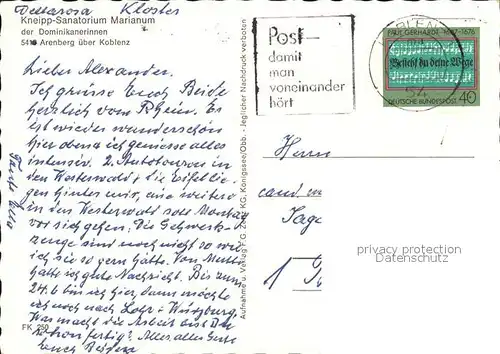 Dellarosa Kloster
Kneipp-Sanatorium Marianum
der Dominikanerinnen
5419 Arenberg über Koblenz
Lieber Alexander.
Ich grüsse Euch Beide
herzlich vom Rhein. Es
ist wieder wunderschön
hier oben ich geniesse alles
intensiv. 2. Autotouren in
den Westerwald & die Eifel lie-
gen hinter mir, eine weitere
in den Westerwald soll Montag
vor sich gehen. Die Schwerk-
zeuge sind noch nicht so wie
ich sie so gern hätte. Von Mutti
hatte ich gute Nachricht. Bis zum
24.6 bin ich hier, dann möchte
ich noch nach Lohr & Würzburg.
Was macht die Arbeit ist Du
schon fertig? Alles alles Gute
Euch Beiden
Tante
FK 250
Aufnahme u. Verlag F.G. Zeitz KG, Königssee/Obb. - Jeglicher Nachdruck verboten
Post-
damit
man
voneinander
hört
KOBLENZ
54
PAUL GERHARDT · 1607-1676
Befiehl du deine Wege
DEUTSCHE BUNDESPOST 40
Herrn
cand
privacy protection
Datenschutz
1